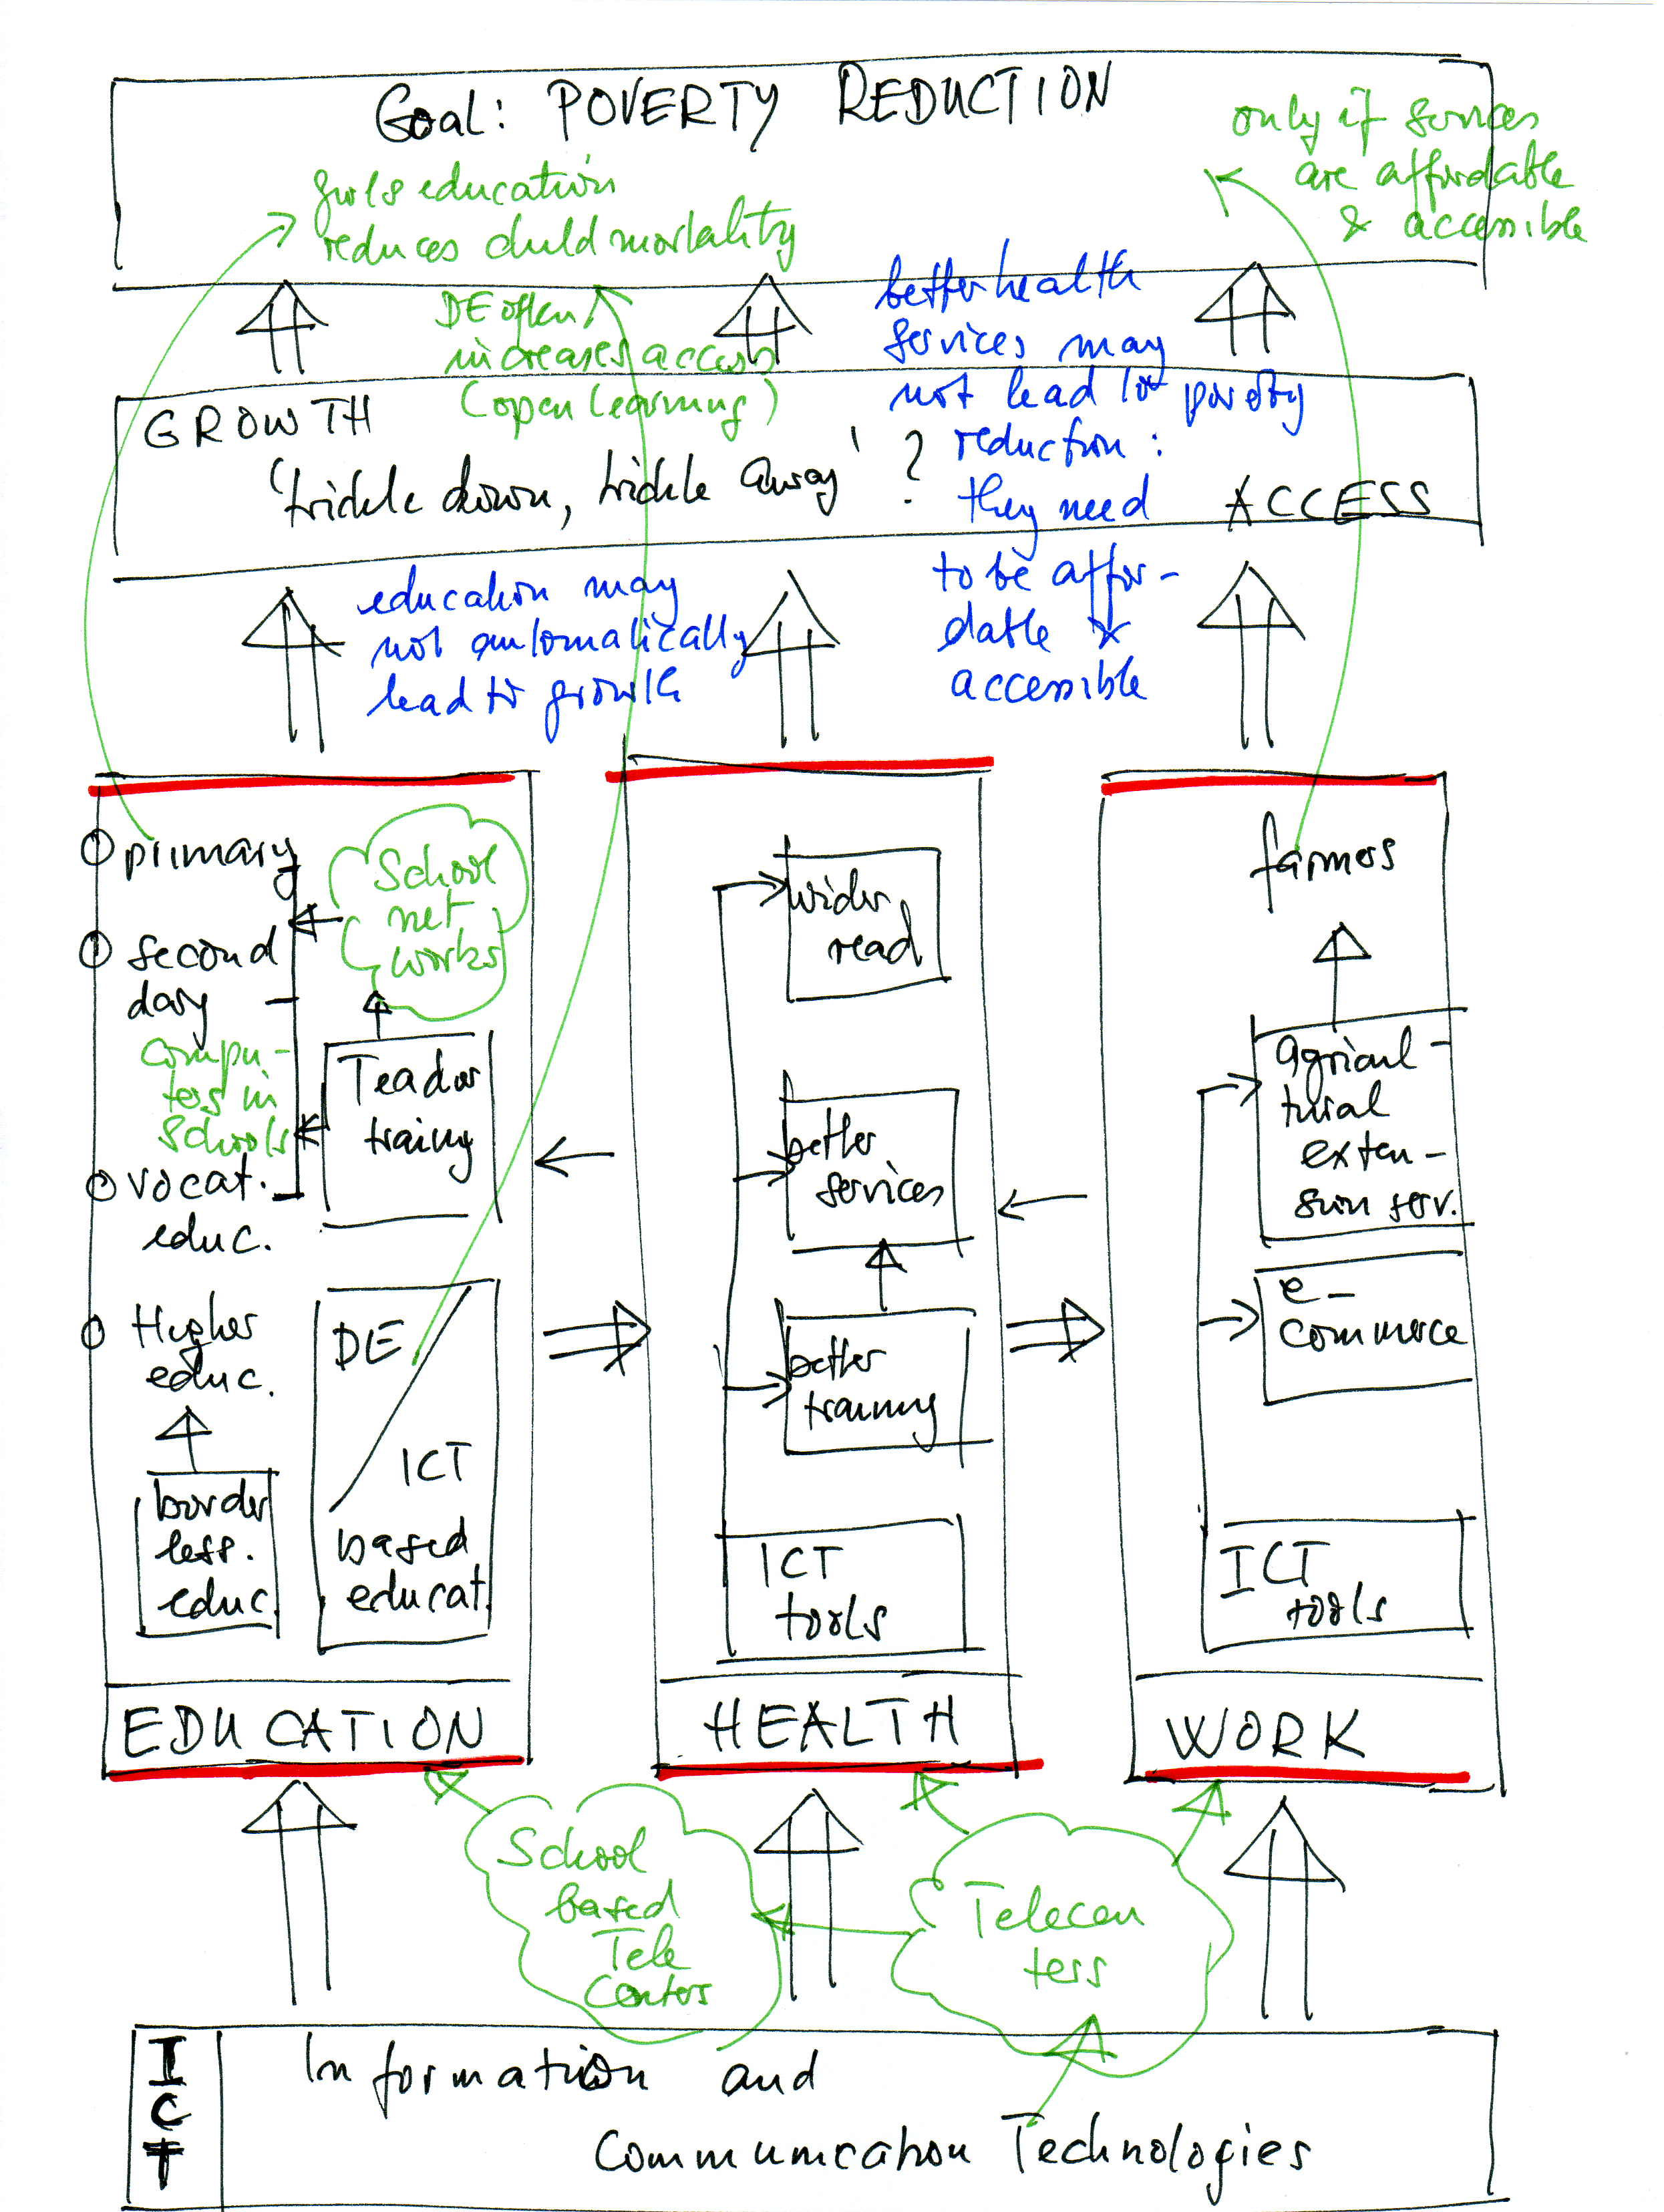 Goal: POVERTY REDUCTION
only if services
are affordable
& accessible
girls education
reduces child mortality
DE often
increases access
(open learning)
better health
services may
not lead to poverty
reduction:
they need
to be affor-
dable &
accessible
GROWTH
'trickle down, trickle away' ?
ACCESS
education may
not automatically
lead to growth
primary
second
dary
compu-
ters in
schools
vocat.
educ.
Higher
educ.
border
less.
educ.
School
net
works
Teacher
training
DE
ICT
based
educat.
EDUCATION
wider
read
better
services
better
training
ICT
tools
HEALTH
farmers
agricul-
tural
exten-
sion serv.
e-
commerce
ICT
tools
WORK
School
based
Tele
Centers
Telecen
ters
ICT
Information and
Communication Technologies